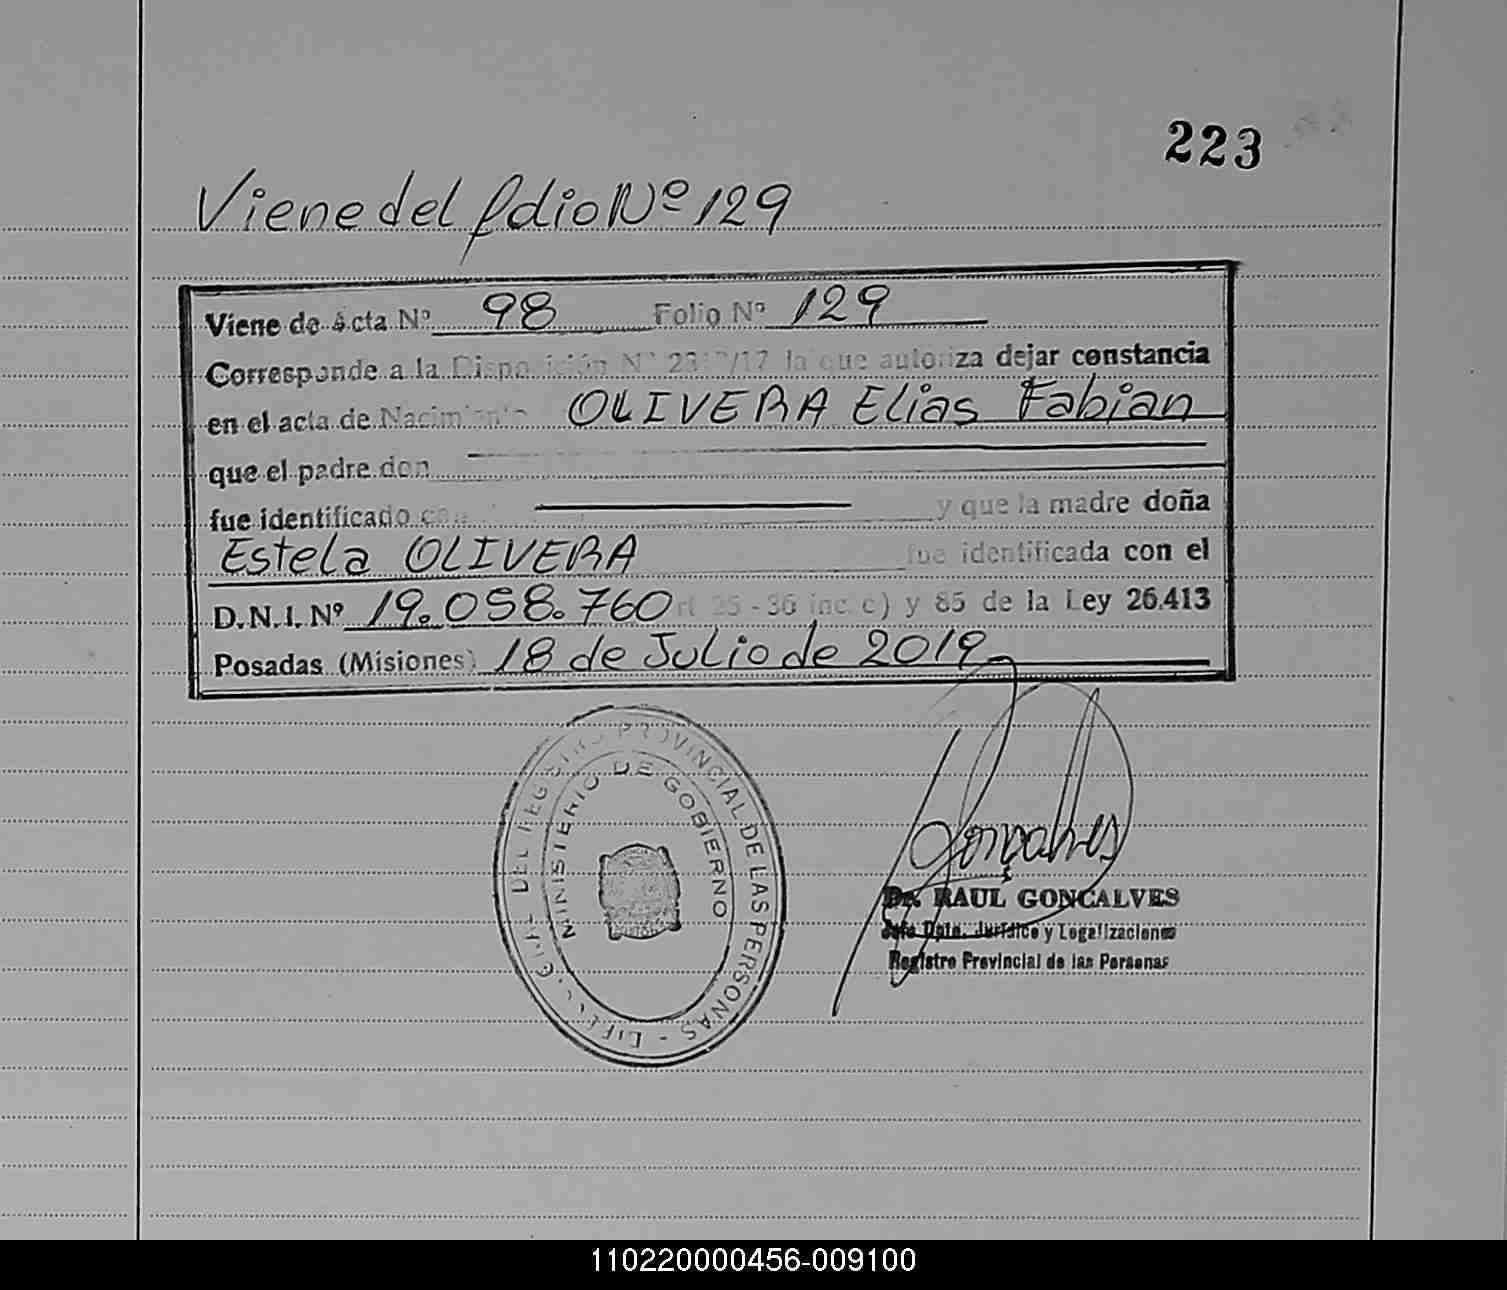 223
Viene del folio Nº 129
Viene de acta Nº 98 Folio Nº 129
Corresponde a la Disposición Nº /17 la que autoriza dejar constancia
en el acta de Nacimiento OLIVERA Elias Fabian
que el padre don
fue identificado con y que la madre doña
Estela OLIVERA fue identificada con el
D.N.I. Nº 19.058.760 rt 25 - 36 inc. c) y 85 de la Ley 26.413
Posadas (Misiones) 18 de Julio de 2019
DEL REGISTRO PROVINCIAL DE LAS PERSONAS -
MINISTERIO DE GOBIERNO
Gonçalves
Dr. RAUL GONÇALVES
Jefe Dpto. Jurídico y Legalizaciones
Registro Provincial de las Personas
110220000456-009100